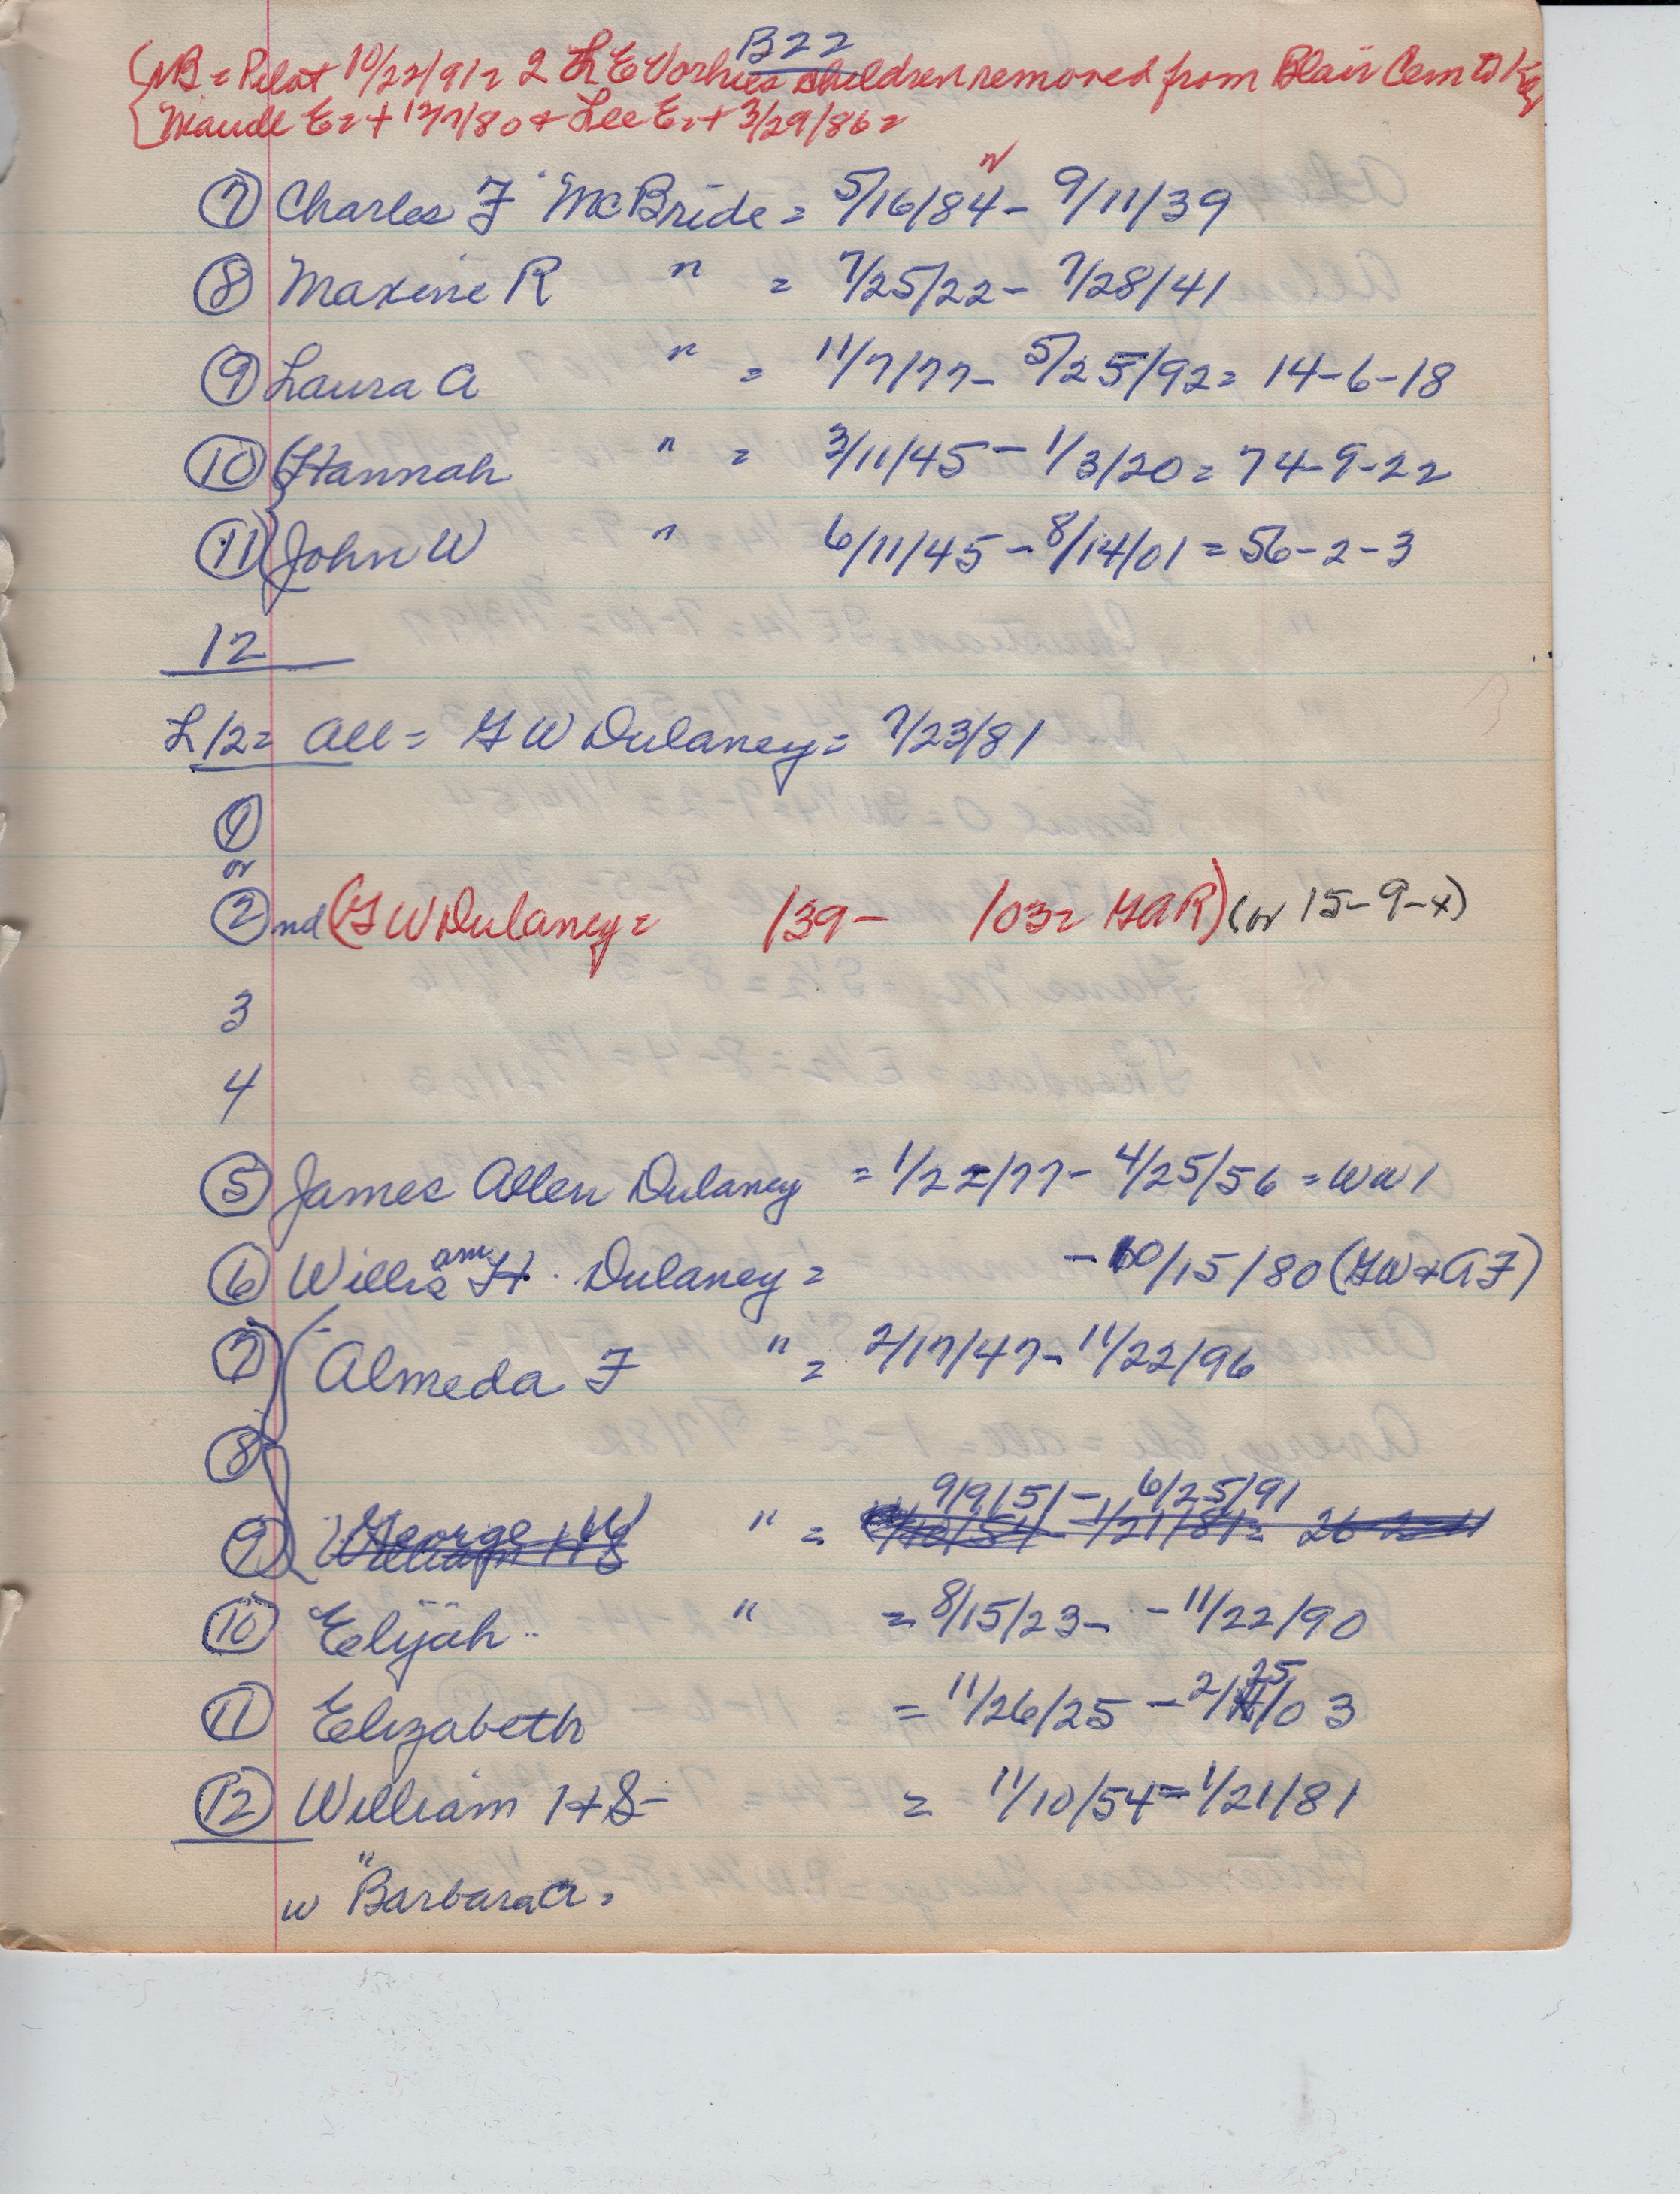 B22
NB = Pilot 10/22/91 = 2 L E Vorhies children removed from Blair Cem to
Maude E = + 12/7/80 + Lee E = + 3/29/86 =
(7) Charles F McBride = 5/16/84 - 9/11/39
(8) Maxine R " = 7/25/22 - 7/28/41
(9) Laura A " = 11/7/77 - 5/25/92 = 14-6-18
(10) Hannah " = 3/11/45 - 1/3/20 = 74-9-22
(11) John W " 6/11/45 - 8/14/01 = 56-2-3
12
L12 = All = G W Dulaney = 7/23/81
(1)
or
(2) nd (G W Dulaney = /39 - /03 = GAR) (or 15-9-x)
3
4
(5) James Allen Dulaney = 1/22/77 - 4/25/56 = WW1
(6) William H. Dulaney = - 10/15/80 (GW + AF)
(7) Almeda F " = 2/17/47 - 11/22/96
(8)
9/9/51 - 6/25/91
(9) George W " = 11/10/54 - 1/21/81 = 26-2-11
(10) Elijah " = 8/15/23 - - 11/22/90
(11) Elizabeth = 11/26/25 - 2/25/03
(12) William H S - = 11/10/54 = 1/21/81
w " Barbara A =